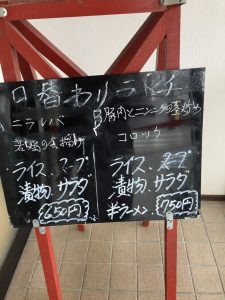 日替わりランチ
A
ニラレバ
若鶏の唐揚げ
ライス、スープ
漬物、サラダ
650円
B
豚肉とニンニクの茎炒め
コロッケ
ライス、スープ
漬物、サラダ
半ラーメン、750円